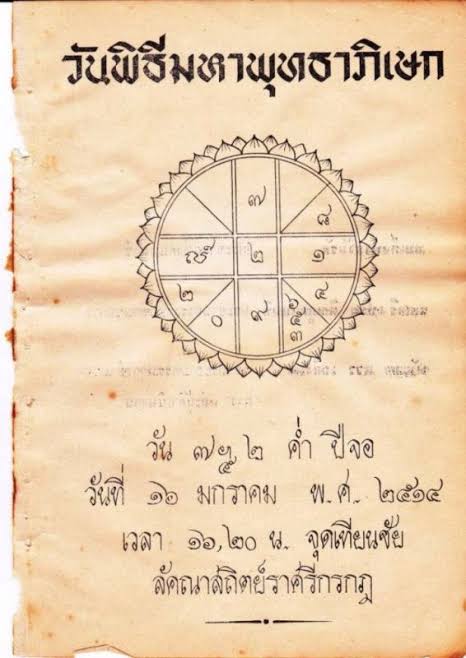 วันพิธีมหาพุทธาภิเษก
๗
๘
๒ ๑
๒ ๔
๐ ๙ ๓
วัน ๗ฯ ๒ ค่ำ ปีจอ
๕
วันที่ ๑๖ มกราคม พ.ศ. ๒๕๑๔
เวลา ๑๖,๒๐ น. จุดเทียนชัย
ลัคณาสถิตย์ราศรีกรกฎ